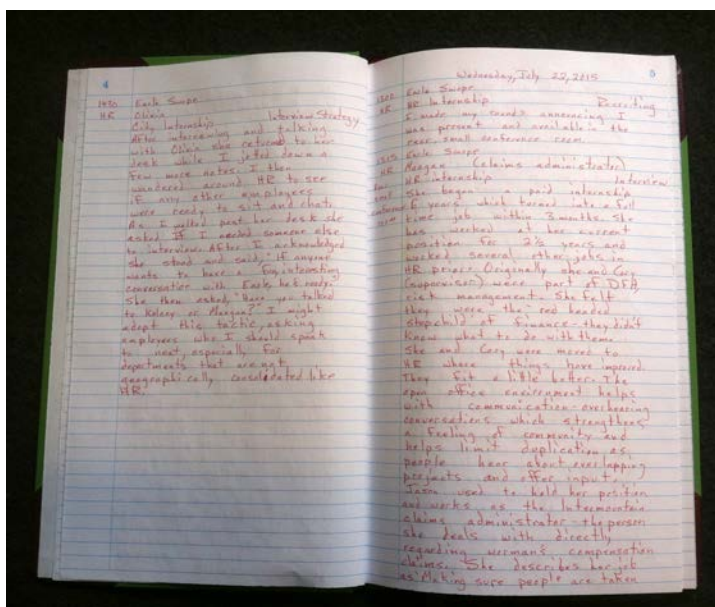 4
1430 Earle Swope
HR Olivia
City Internship Interview Strategy
After interviewing and talking
with Olivia she returned to her
desk while I jotted down a
few more notes. I then
wandered around HR to see
if any other employees
were ready to sit and chat.
As I walked past her desk she
asked if I needed someone else
to interview. After I acknowledged
she stood and said, "If anyone
wants to have a fun, interesting
conversation with Earle, he's ready."
She then asked, "Have you talked
to Kelsey or Meagan?" I might
adopt this tactic, asking
employees who I should speak
to next, especially for
departments that are not
geographically consolidated like
HR.
5
Wednesday, July 22, 2015
1300 Earle Swope
HR HR Internship Recruiting
I made my rounds announcing I
was present and available in the
rear, small conference room.
1315 Earle Swope
HR Meagan (claims administrator)
HR internship Interview
She began a paid internship
6 years, which turned into a full
time job within 3 months. She
has worked at her current
position for 2½ years and
worked several other jobs in
HR prior. Originally she and Cory
(supervisor) were part of DFA,
risk management. She felt
they were the red headed
stepchild of finance - they didn't
know what to do with them.
She and Cory were moved to
HR where things have improved.
They fit a little better. The
open office environment helps
with communication - overhearing
conversations which strengthens
a feeling of community and
helps limit duplication as
people hear about overlapping
projects and offer input.
Jason used to hold her position
and works as the Intermountain
claims administrator - the person
she deals with directly
regarding worman's compensation
claims. She describes her job
as "Making sure people are taken